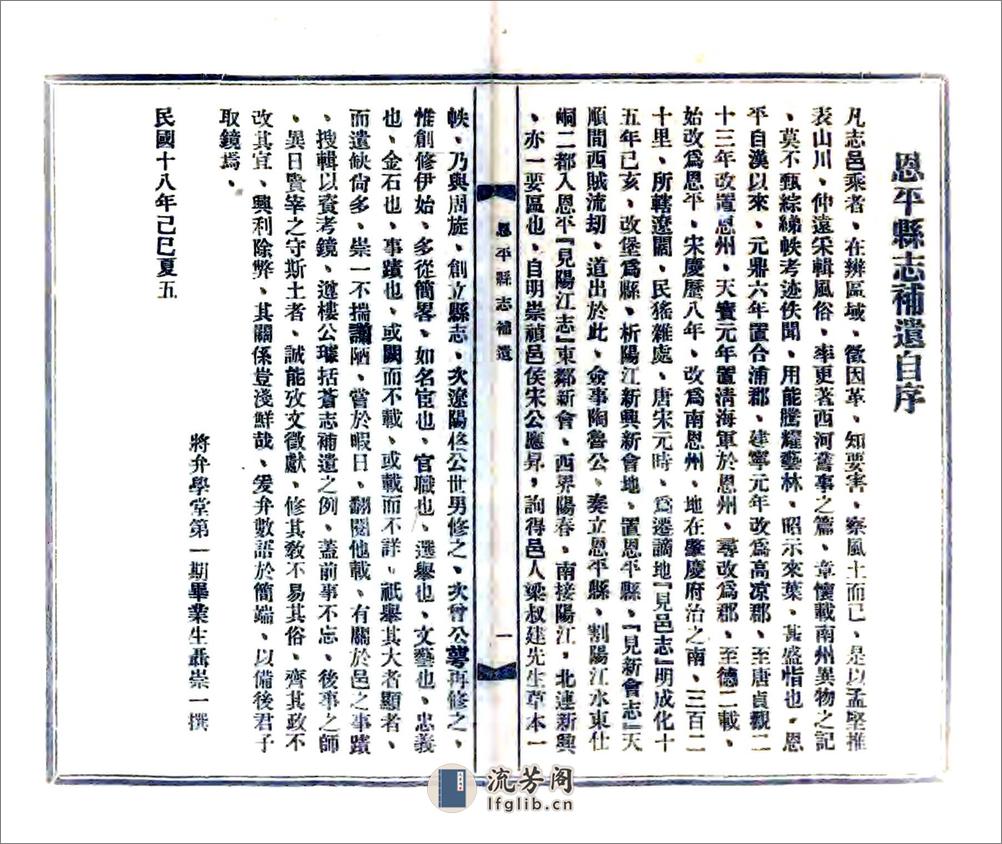 恩平縣志補遺自序
凡志邑乘者、在辨區域、徵因革、知要害、察風土而已、是以孟堅推
表山川、仲遠采輯風俗、率更著西河舊事之篇、章懷載南州異物之記
、莫不甄綜綈帙考迹佚聞、用能騰耀藝林、昭示來葉、甚盛恉也、恩
平自漢以來、元鼎六年置合浦郡、建寧元年改爲高凉郡、至唐貞觀二
十三年改置恩州、天寶元年置淸海軍於恩州、尋改爲郡、至德二載、
始改爲恩平、宋慶歷八年、改爲南恩州、地在肇慶府治之南、三百二
十里、所轄遼闊、民猺雜處、唐宋元時、爲遷謫地『見邑志』明成化十
五年己亥、改堡爲縣、析陽江新興新會地、置恩平縣、『見新會志』天
順間西賊流刧、道出於此、僉事陶魯公、奏立恩平縣、割陽江水東仕
峒二都入恩平『見陽江志』東鄰新會、西界陽春、南接陽江、北連新興
、亦一要區也、自明崇禎邑侯宋公應昇，詢得邑人梁叔建先生草本一
恩平縣志補遺
一
帙、乃與周旋、創立縣志、次遼陽佟公世男修之、次曾公萼再修之、
惟創修伊始、多從簡畧、如名宦也、官職也、選舉也、文藝也、忠義
也、金石也、事蹟也、或闕而不載、或載而不詳、祇舉其大者顯者、
而遺缺尙多、崇一不揣譾陋、嘗於暇日、翻閱他載、有關於邑之事蹟
、搜輯以資考鏡、遵樓公璨括蒼志補遺之例、蓋前事不忘、後事之師
、異日賢宰之守斯土者、誠能攷文徵獻、修其敎不易其俗、齊其政不
改其宜、興利除弊、其關係豈淺鮮哉、爰弁數語於簡端、以備後君子
取鏡焉、
將弁學堂第一期畢業生聶崇一撰
民國十八年己巳夏五
流芳阁
lfglib.cn